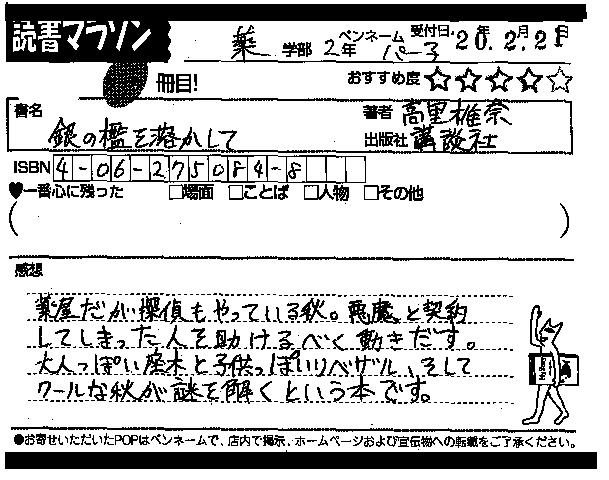 読書マラソン
薬 学部 2年 ペンネーム パー子 受付日 20年2月21日
冊目! おすすめ度 ★★★★☆
書名 銀の檻を溶かして
著者 高里椎奈
出版社 講談社
ISBN 4-06-275084-8
♥一番心に残った □場面 □ことば □人物 □その他
( )
感想
薬屋だが探偵もやっている秋。悪魔と契約
してしまった人を助けるべく動きだす。
大人っぽい座木と子供っぽいリベザル、そして
クールな秋が謎を解くという本です。
●お寄せいただいたPOPはペンネームで、店内で掲示、ホームページおよび宣伝物への転載をご了承ください。